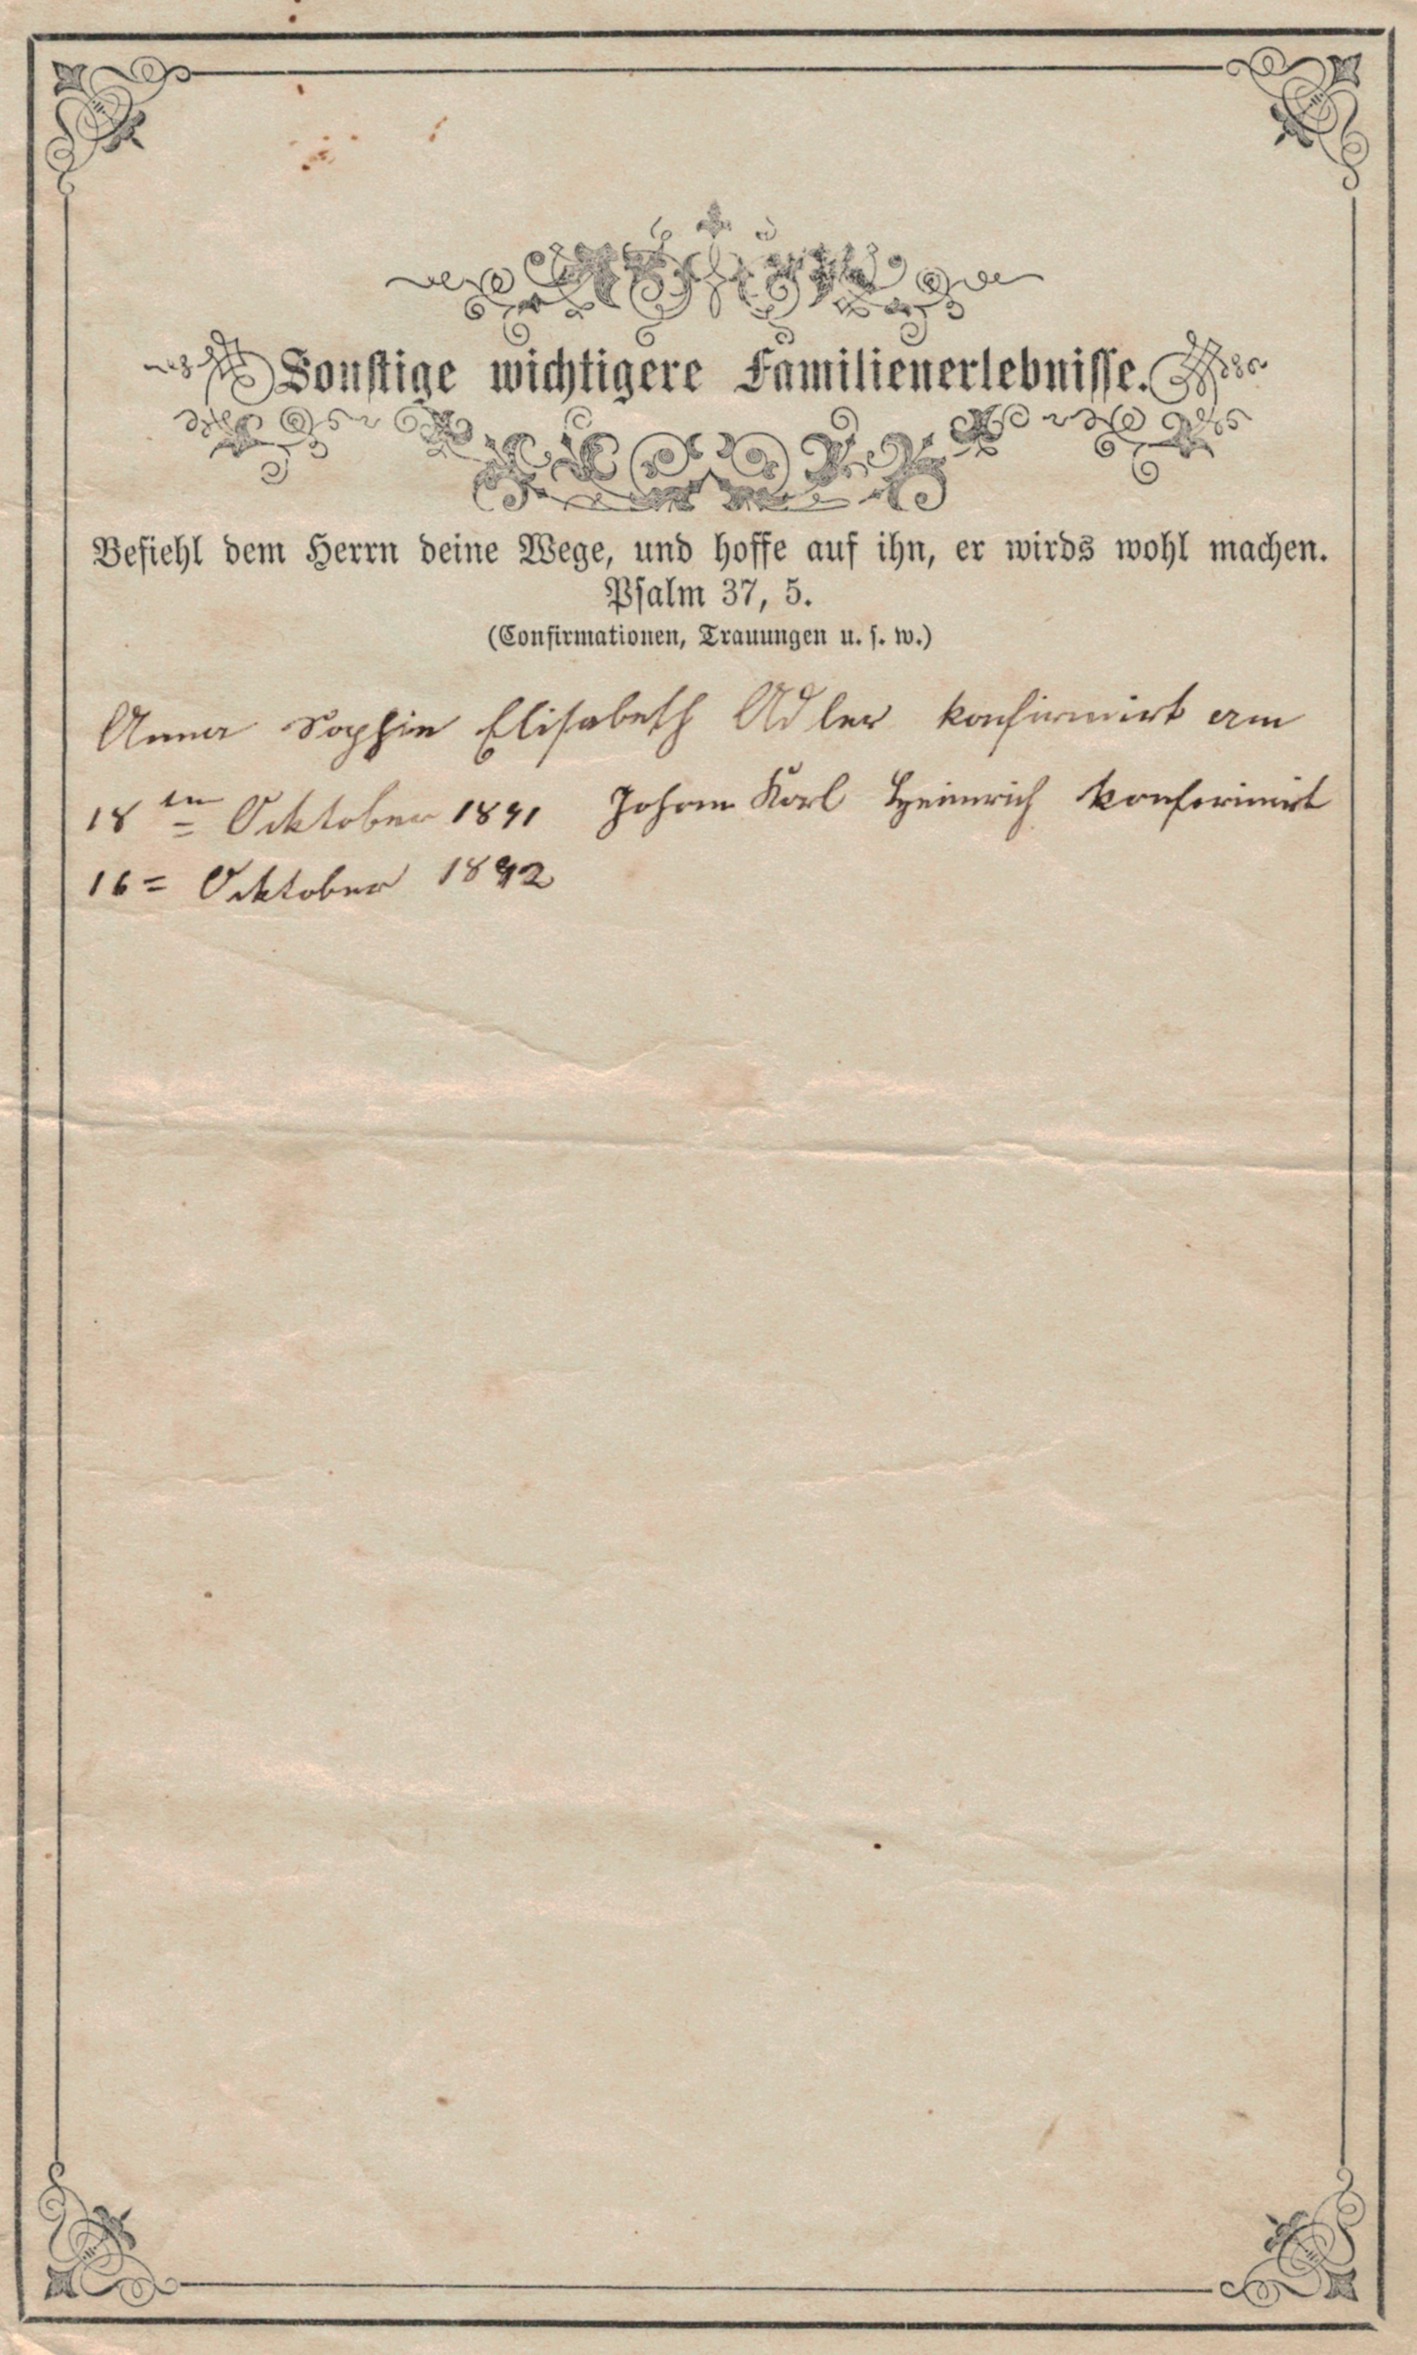 Sonstige wichtigere Familienerlebnisse.
Befiehl dem Herrn deine Wege, und hoffe auf ihn, er wirds wohl machen.
Psalm 37, 5.
(Confirmationen, Trauungen u. s. w.)
Anna Sophie Elisabeth Adler konfirmirt am
18ten Ocktober 1891 Johann Karl Heinrich konfirmirt
16= Ocktober 1892